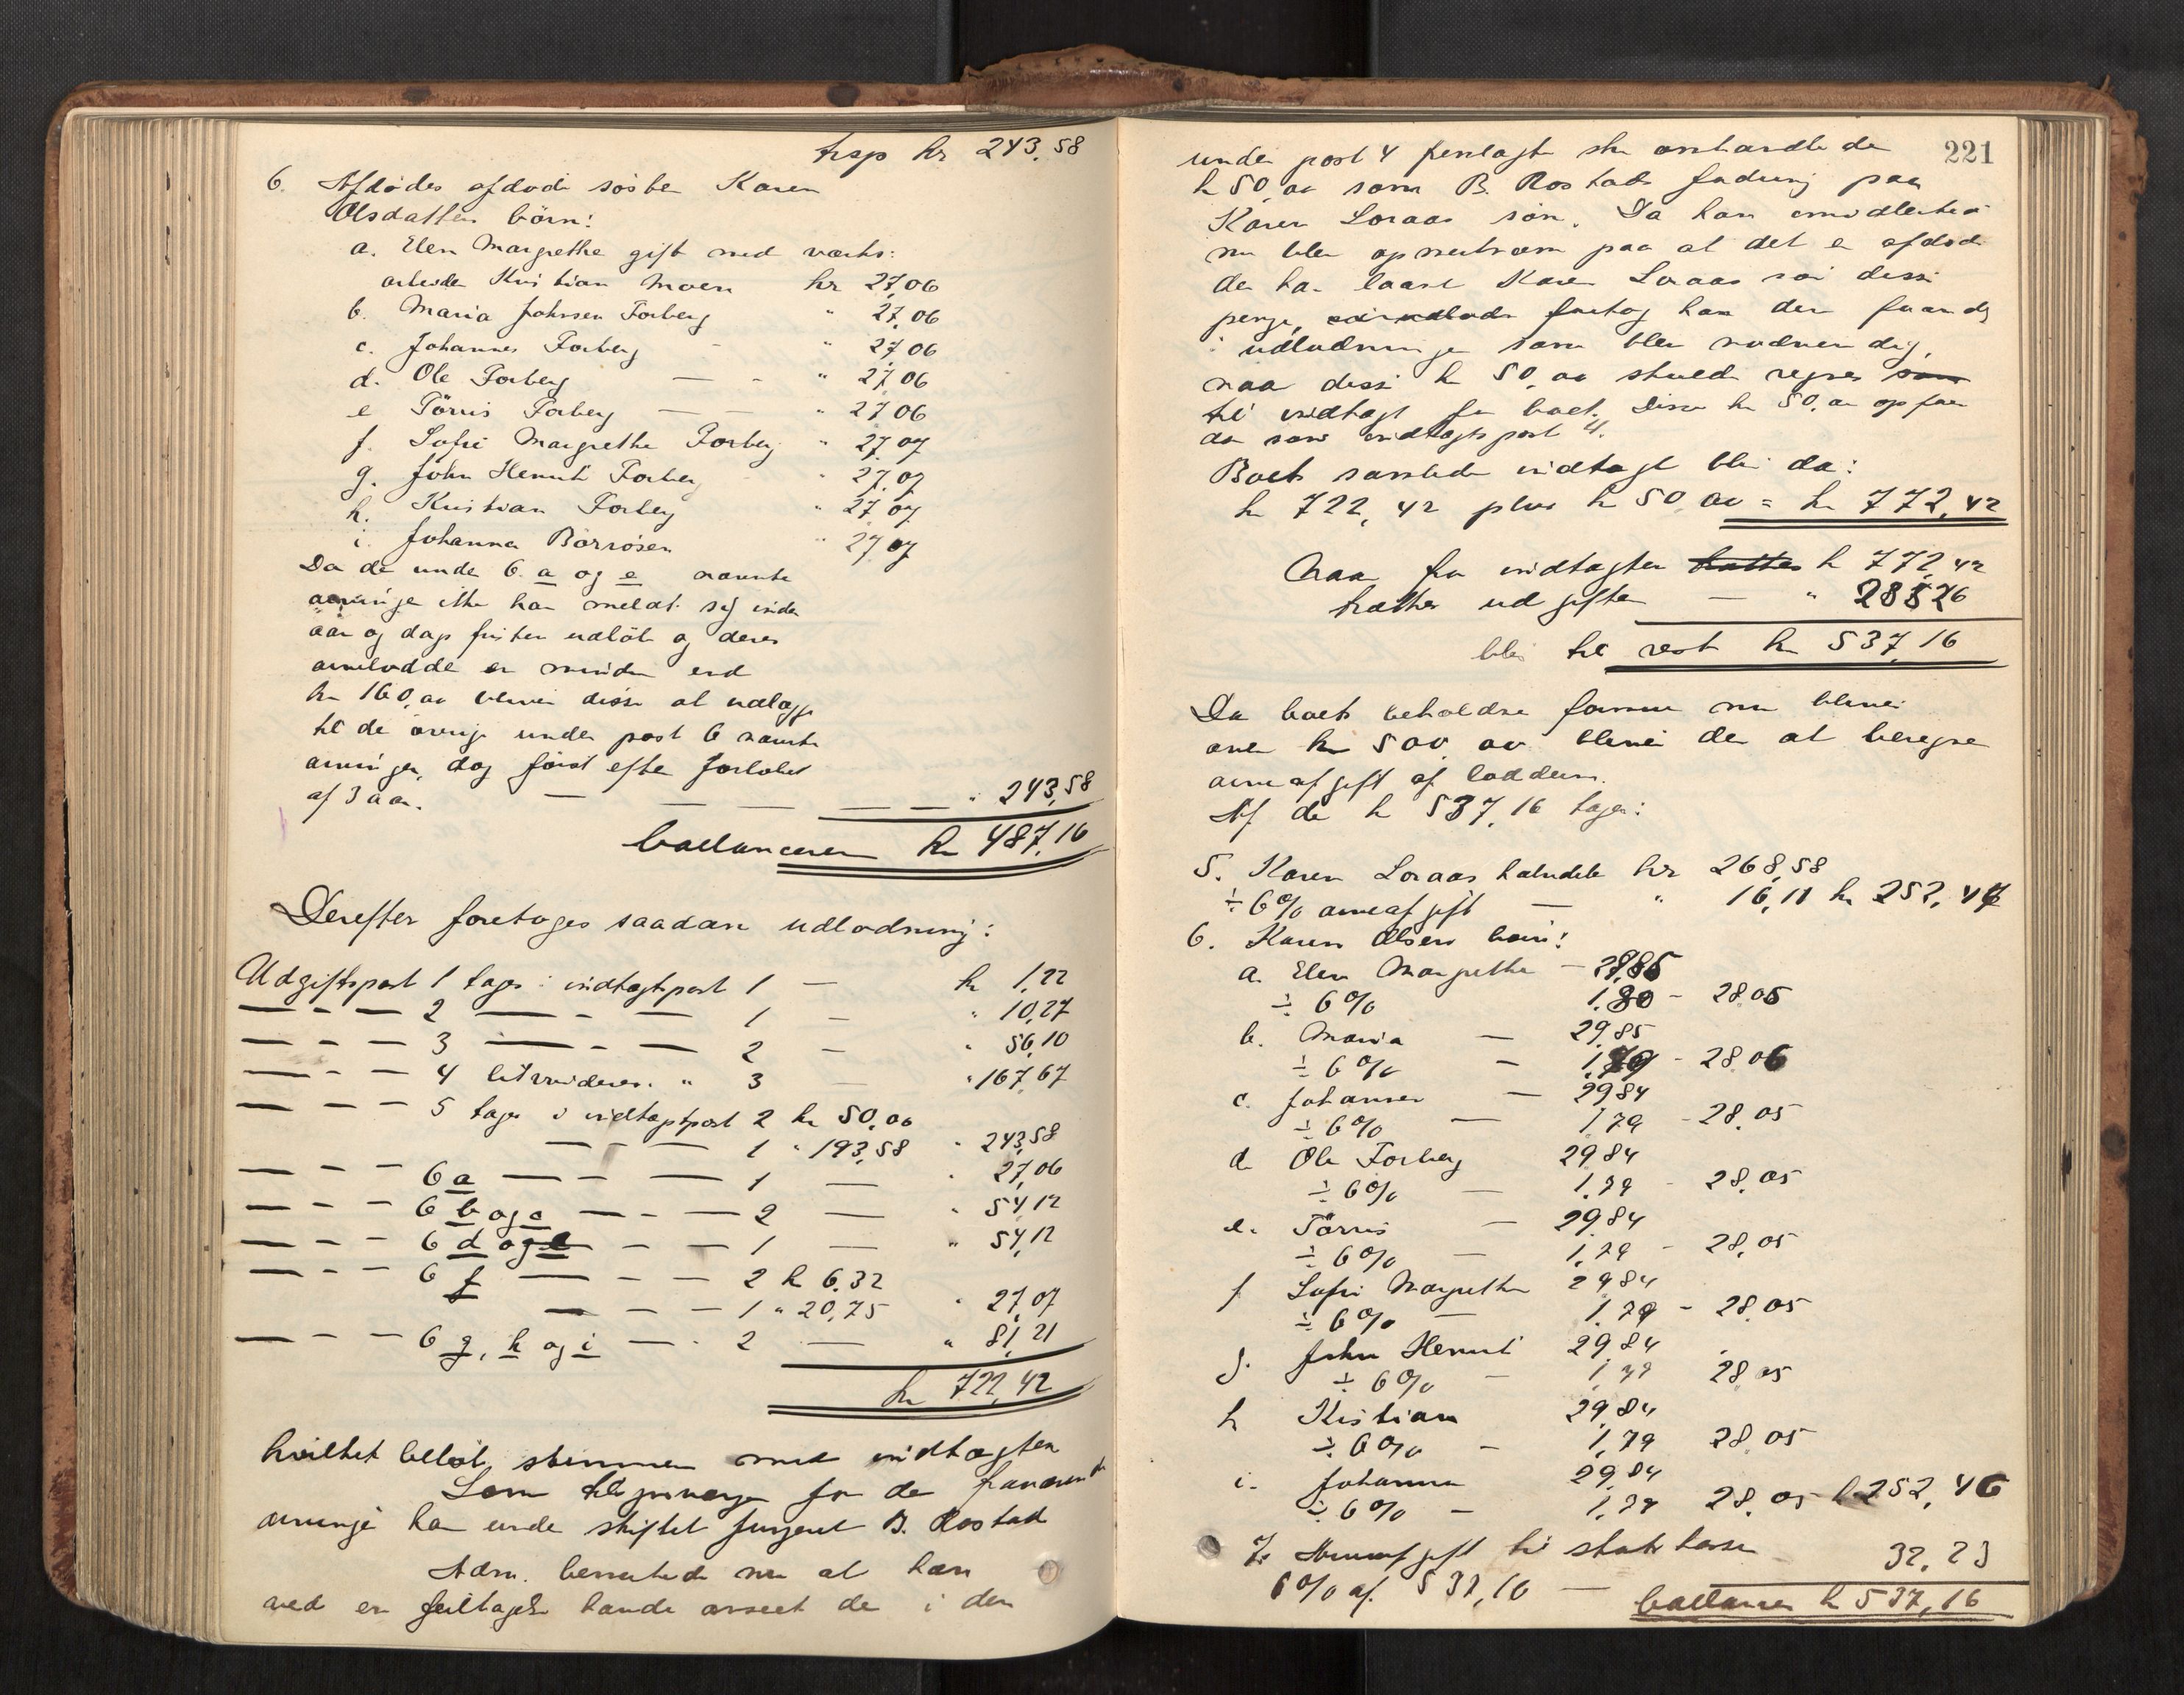 trsp kr 243,58
6. Afdödes afdöde söster Karen
Olsdatters börn:
a. Elen Margrethe gift med værks:
arbeider Kristian Moen kr 27,06
b. Maria Johnsen Forberg " 27,06
c. Johannes Forberg - " 27,06
d. Ole Forberg — - " 27,06
e Törris Forberg — — " 27,06
f. Sofie Margrethe Forberg " 27,07
g. John Henrik Forberg " 27,07
h. Kristian Forberg " 27,07
i. Johanna Borrösen " 27,07
Da de under 6. a og e nævnte
arvinge ikke har meldt sig inden
aar og dags fristen udlöb og deres
arvelodde er mindre end
kr 160,00 bliver disse at udlægge
til de övrige under post 6 nævnte
arvinger, dog först efter forlöbet
af 3 aar. — — — — — " 243,58
ballancerer kr 487,16
Derefter foretages saadan udlodning:
Udgiftspost 1 tages i indtægtspost 1 — kr 1,22
— — — 2 — - — 1 — " 10,27
— — — 3 — - — 2 — " 56,10
— — — 4 " 3 — " 167,67
— — — 5 tages i indtægtspost 2 kr 50,00
— — — 1 " 193,58 " 243,58
— — — 6 a — - — 1 — " 27,06
— — — 6 b og c — - — 2 — " 54,12
— — — 6 d og e — - — 1 — " 54,12
— — — 6 f — - — 2 kr 6,32
— - — 1 " 20,75 " 27,07
— — — 6 g, h og i — - 2 — " 81,21
kr 722,42
hvilket belöb stemmer med indtægten
Som for de fraværende
arvinge har under skiftet fungeret B. Rostad
Adm. bemerkede nu at han
ved en feiltagelse havde anseet de i den
221
under post 4 omhandlede
kr 50,00 som B. Rostads fordring paa
Karen Loraas sön. Da han imidlertid
nu blev opmerksom paa at det er afdöde
der har laant Karen Loraas sön disse
penge, foretog han den forandring
i udlodningen som blev nödvendig,
naar disse kr 50,00 skulde regnes
til indtægt for boet. Disse kr 50,00 opföres
da som indtægtspost 4.
Boets samlede indtægt blir da:
kr 722,42 plus kr 50,00 = kr 772,42
Naar fra indtægten kr 772,42
trækkes udgiften — " 235,26
blir til rest kr 537,16
Da boets beholdne formue nu bliver
over kr 500,00 bliver der at beregne
arveafgift af loddene.
Af de kr 537,16 tager:
5. Karen Loraas halvdele kr 268,58
÷ 6% arveafgift — " 16,11 kr 252,47
6. Karen Olsens börn:
a. Elen Margrethe — 29,85
÷ 6% 1,80 - 28,05
b. Maria — 29,85
÷ 6% — 1,79 - 28,06
c. Johannes — 29,84
÷ 6% — 1,79 - 28,05
d Ole Forberg 29,84
÷ 6% — 1,79 - 28,05
e. Törris — 29,84
÷ 6% — 1,79 - 28,05
f Sofie Margrethe 29,84
÷ 6% — 1,79 - 28,05
g. John Henrik 29,84
÷ 6% — 1,79 28,05
h Kristian 29,84
÷ 6% — 1,79 28,05
i. Johanna 29,84
÷ 6% — 1,79 28,05 kr 252,46
7. Arveafgift til statskassen 32,23
6% af 537,16 — ballancerer kr 537,16